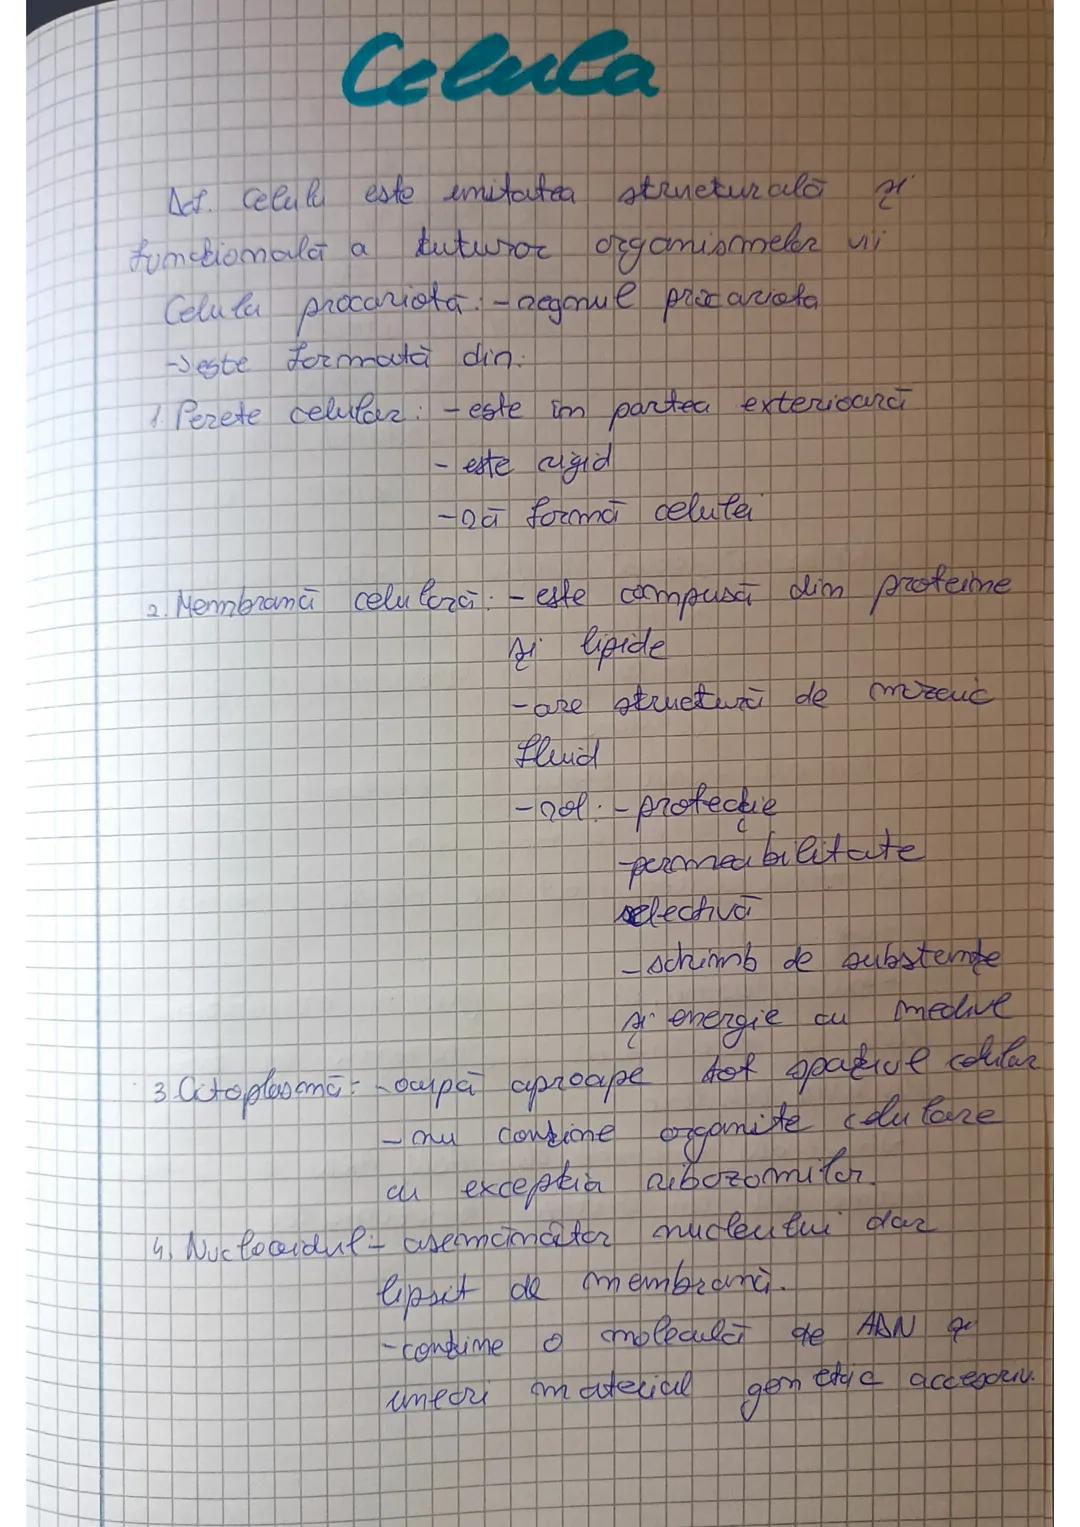 Celula
Def. Celula este unitatea structurală și
funcțională a tuturor organismelor vii
Celula procariotă: - regnul procariota
→ este formată din:
1. Perete celular: - este în partea exterioară
- este rigid
- dă formă celulei
2. Membrană celulară: - este compusă din proteine
și lipide
- are structură de mozaic
fluid
- rol: - protecție
- permeabilitate
selectivă
- schimb de substanțe
și energie cu mediul
3. Citoplasmă: - ocupă aproape tot spațiul celular
- nu conține organite celulare
cu excepția ribozomilor.
4. Nucleoidul - asemănător nucleului dar
lipsit de membrană.
- conține o moleculă de ADN și
uneori material genetic accesoriu.